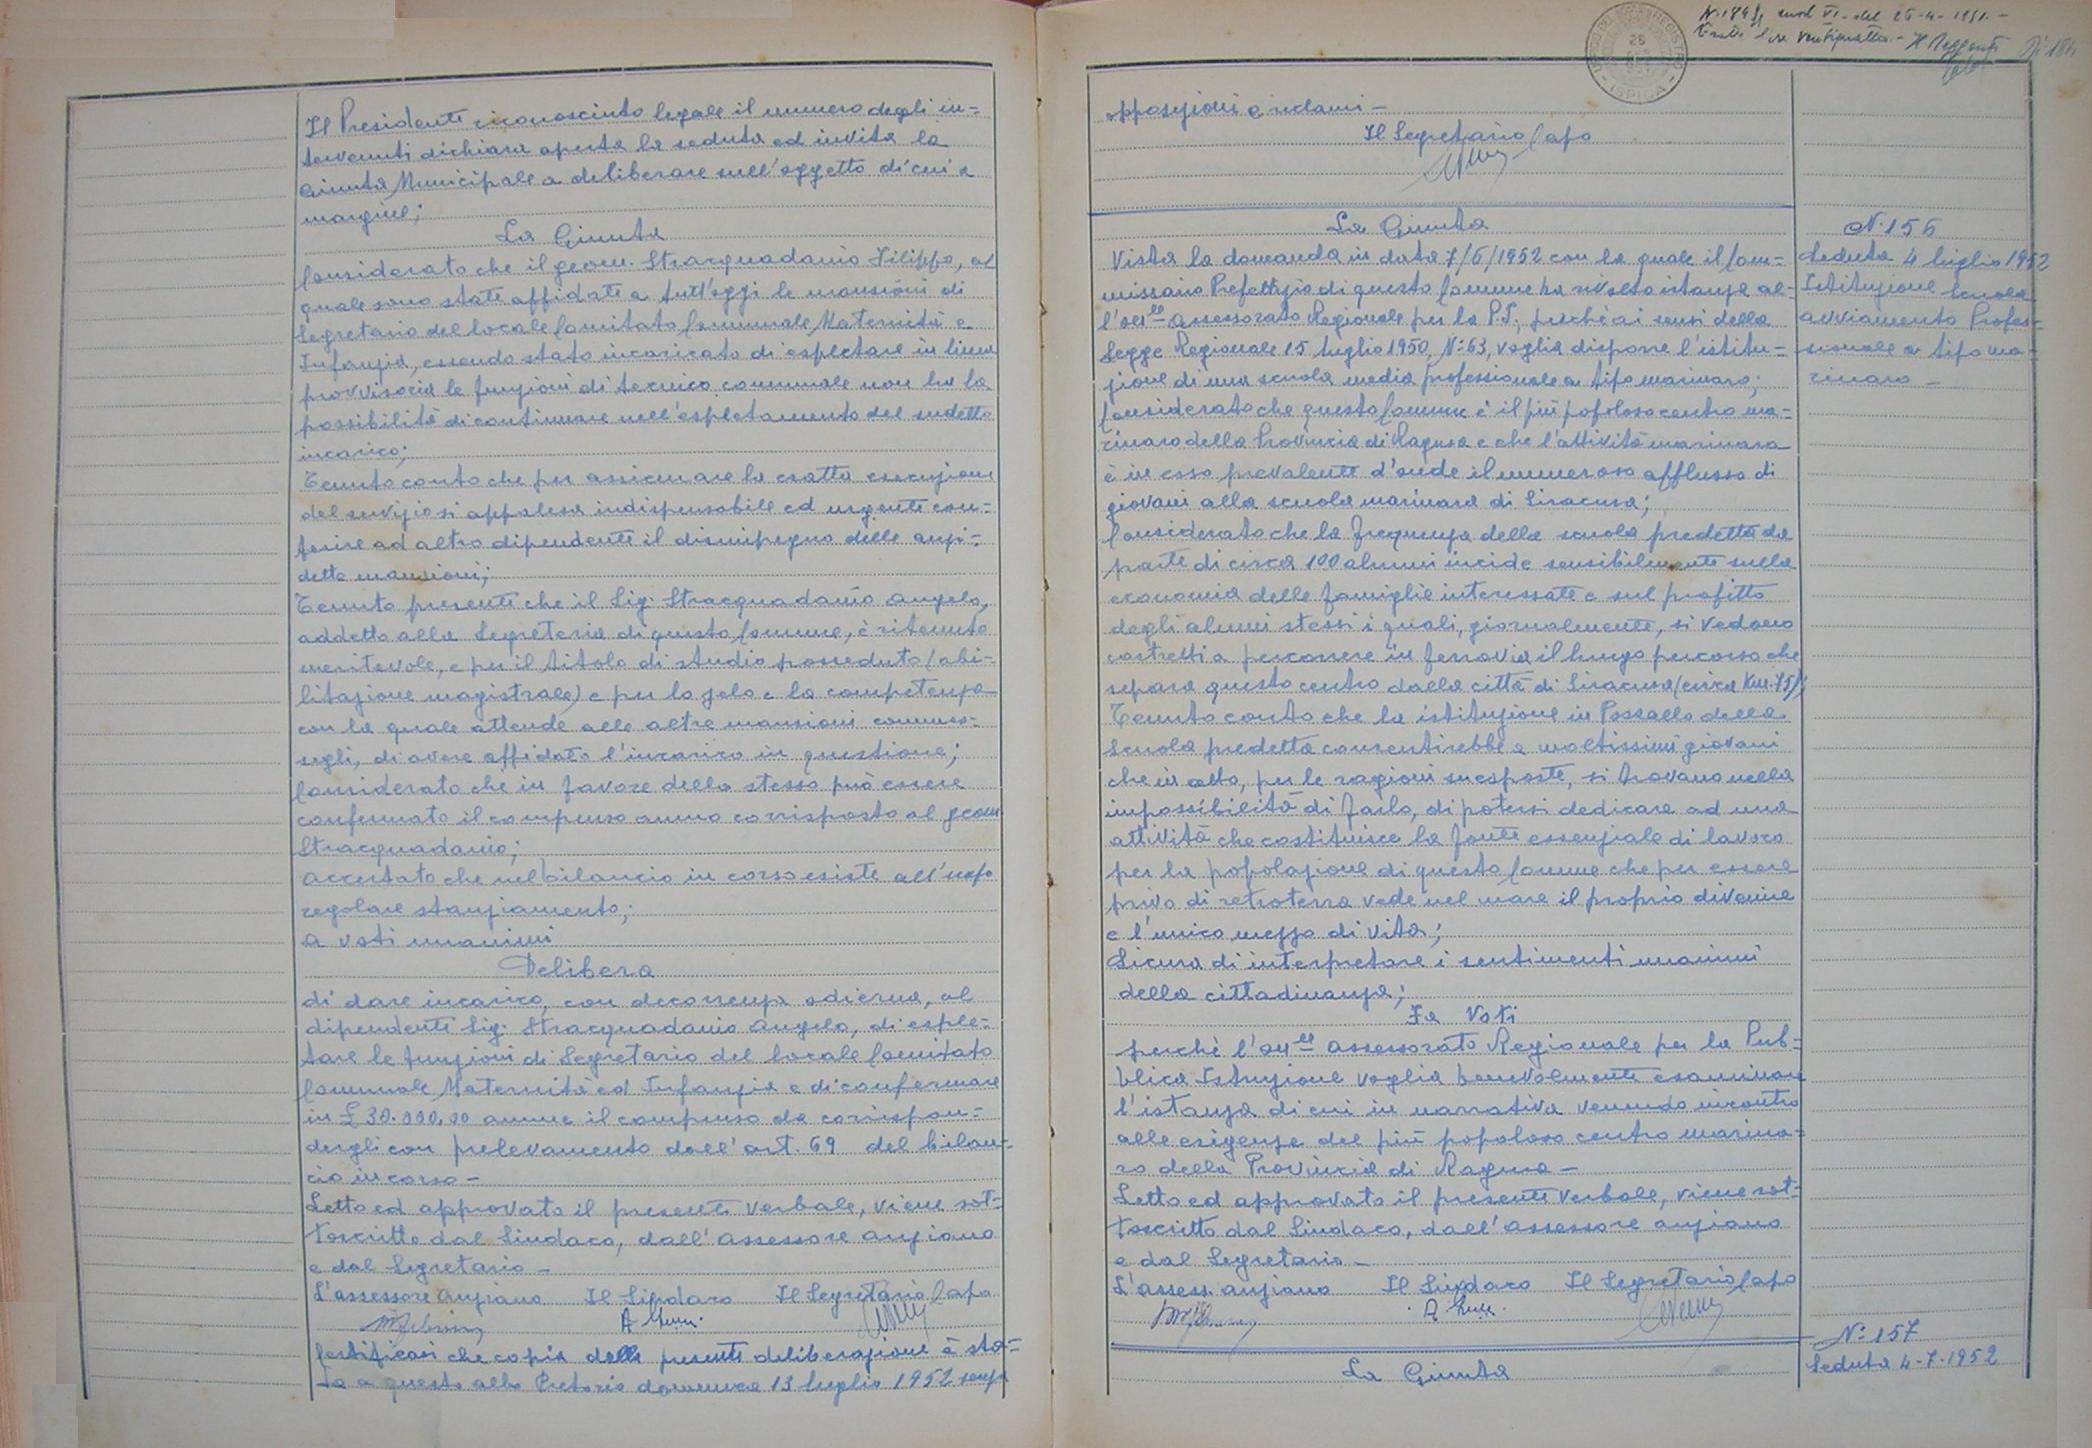 Il Presidente riconosciuto legale il numero degli in=
tervenuti dichiara aperta la seduta ed invita la
Giunta Municipale a deliberare sull'oggetto di cui a
margine;
La Giunta
Considerato che il geom. Stracquadanio Filippo, al
quale sono state affidate a tutt'oggi le mansioni di
Segretario del locale Comitato Comunale Maternità e
Infanzia, essendo stato incaricato di espletare in linea
provvisoria le funzioni di tecnico comunale non ha la
possibilità di continuare nell'espletamento del sudetto
incarico;
Tenuto conto che per assicurare la esatta esecuzione
del servizio si appalesa indispensabile ed urgente con=
ferire ad altro dipendente il disimpegno delle anzi=
dette mansioni;
Tenuto presente che il Sig. Stracquadanio Angelo,
addetto alla Segreteria di questo Comune, è ritenuto
meritevole, e per il titolo di studio posseduto (abi=
litazione magistrale) e per lo zelo e la competenza
con la quale attende alle altre mansioni commes=
segli, di avere affidato l'incarico in questione;
Considerato che in favore dello stesso può essere
confermato il compenso annuo corrisposto al geom
Stracquadanio;
Accertato che nel bilancio in corso esiste all'uopo
regolare stanziamento;
a voti unanimi
Delibera
di dare incarico, con decorrenza odierna, al
dipendente Sig. Stracquadanio Angelo, di esple=
tare le funzioni di Segretario del locale Comitato
Comunale Maternità ed Infanzia e di confermare
in £ 30.000,00 annue il compenso da corrispon=
dergli con prelevamento dall'art. 69 del bilan=
cio in corso -
Letto ed approvato il presente verbale, viene sot=
toscritto dal Sindaco, dall'Assessore anziano
e dal Segretario -
L'assessore anziano Il Sindaco Il Segretario Capo
Certificasi che copia della presente deliberazione è sta=
ta a questo albo Pretorio domenica 13 luglio 1952 senza
N. 184 vol VI del 26-4-1951.-
Esatte lire ventiquattro.- Il Reggente
UFFICIO DEL REGISTRO
26
ISPICA
opposizioni e reclami -
Il Segretario Capo
La Giunta
Vista la domanda in data 7/6/1952 con la quale il Com=
missario Prefettizio di questo Comune ha rivolto istanza al=
l'on.le Assessorato Regionale per la P.I., perchè ai sensi della
Legge Regionale 15 luglio 1950, N. 63, voglia disporre l'istitu=
zione di una scuola media professionale a tipo marinaro;
Considerato che questo Comune è il più popoloso centro ma=
rinaro della Provincia di Ragusa e che l'attività marinara
è in esso prevalente d'onde il numeroso afflusso di
giovani alla scuola marinara di Siracusa;
Considerato che la frequenza della scuola predetta da
parte di circa 100 alunni incide sensibilmente sulla
economia delle famiglie interessate e sul profitto
degli alunni stessi i quali, giornalmente, si vedono
costretti a percorrere in ferrovia il lungo percorso che
separa questo centro dalla città di Siracusa (circa Km. 75);
Tenuto conto che la istituzione in Pozzallo della
Scuola predetta consentirebbe a moltissimi giovani
che in atto, per le ragioni suesposte, si trovano nella
impossibilità di farlo, di potersi dedicare ad una
attività che costituisce la fonte essenziale di lavoro
per la popolazione di questo Comune che per essere
privo di retroterra vede nel mare il proprio divenire
e l'unico mezzo di vita;
Sicura di interpretare i sentimenti unanimi
della cittadinanza;
Fa Voti
perchè l'on.le Assessorato Regionale per la Pub=
blica Istruzione voglia benevolmente esaminare
l'istanza di cui in narrativa venendo incontro
alle esigenze del più popoloso centro marina=
ro della Provincia di Ragusa -
Letto ed approvato il presente verbale, viene sot=
toscritto dal Sindaco, dall'Assessore anziano
e dal Segretario -
L'assess. anziano Il Sindaco Il Segretario Capo
La Giunta
N. 156
Seduta 4 luglio 1952
Istituzione scuola
avviamento Profes=
sionale a tipo ma=
rinaro -
N. 157
Seduta 4-7-1952